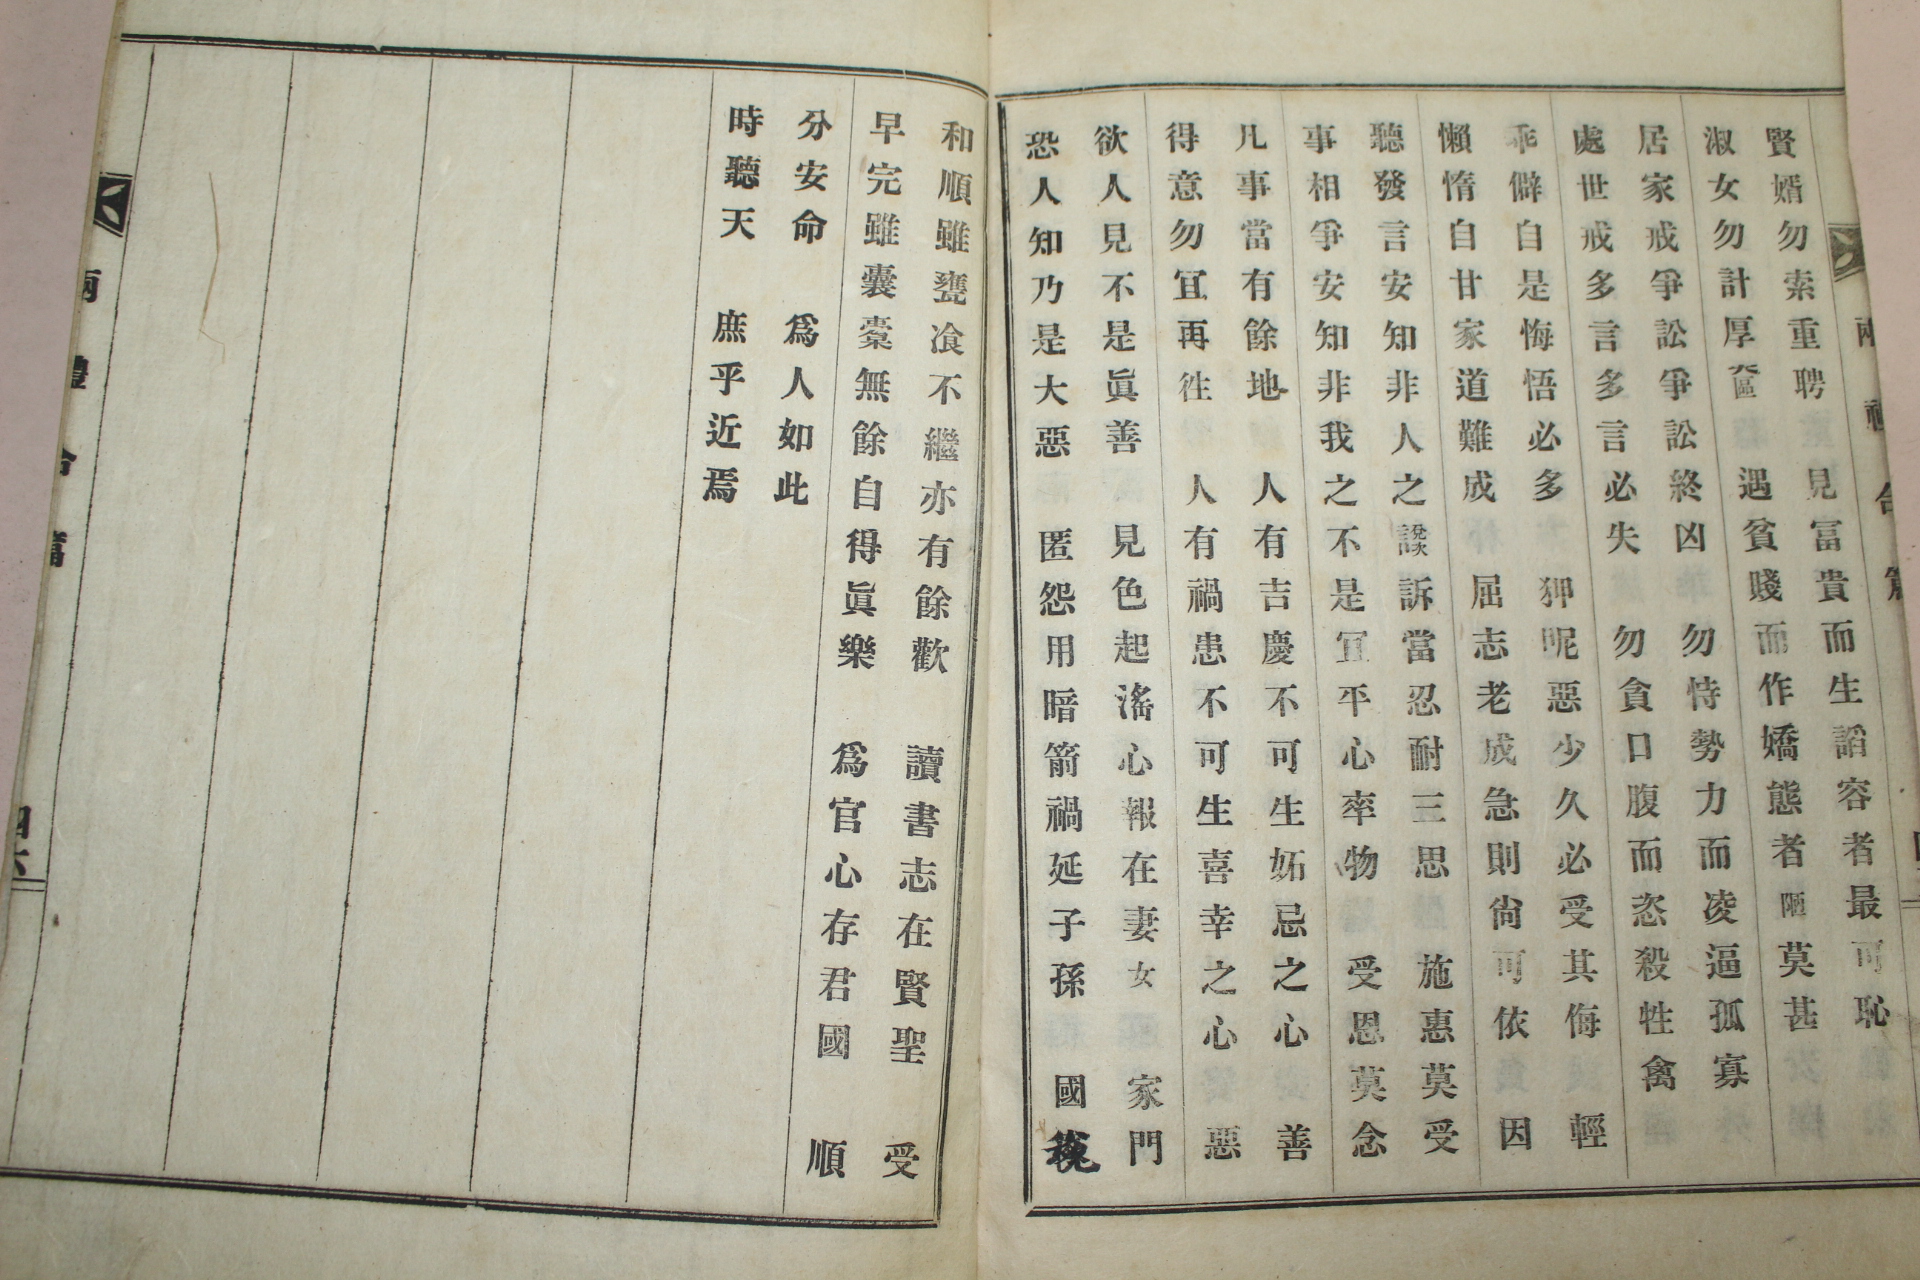 賢婿勿索重聘　見冨貴而生謟容者最可恥
淑女勿計厚奩　遇貧賤而作嬌態者陋莫甚
居家戒爭訟爭訟終凶　勿恃勢力而凌逼孤寡
處世戒多言多言必失　勿貪口腹而恣殺牲禽
乖僻自是悔悟必多　狎昵惡少久必受其侮　輕
懶惰自甘家道難成　屈志老成急則尙可依　因
聽發言安知非人之譖訴當忍耐三思　施惠莫受
事相爭安知非我之不是冝平心率物　受恩莫念
凡事當有餘地　人有吉慶不可生妬忌之心　善
得意勿冝再徃　人有禍患不可生喜幸之心　惡
欲人見不是眞善　見色起滛心報在妻女　家門
恐人知乃是大惡　匿怨用暗箭禍延子孫　國
和順雖甕飡不繼亦有餘歡　讀書志在賢聖　受
早完雖囊槖無餘自得眞樂　爲官心存君國　順
分安命　爲人如此
時聽天　庶乎近焉